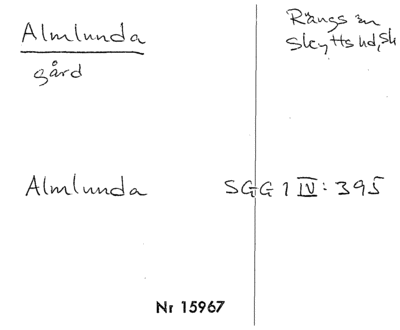 Almlunda
gård
Rängs sn
Skytts hd, Sk
Almlunda SGG 1 IV: 395
Nr 15967